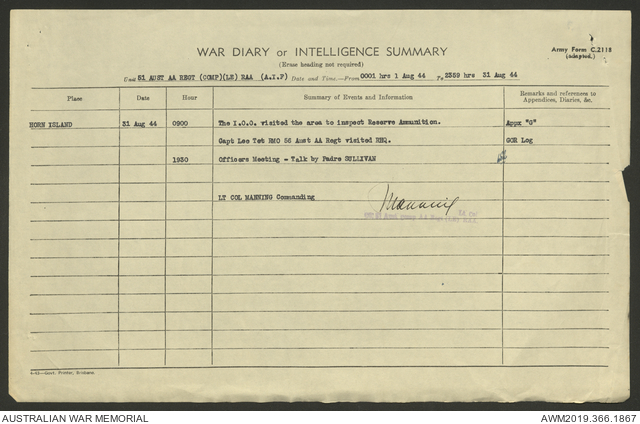 WAR DIARY or INTELLIGENCE SUMMARY
(Erase heading not required)
Army Form C.2118
(Adapted.)
Unit 51 AUST AA REGT (COMP)(LE) RAA (A.I.F) Date and Time.—From 0001 hrs 1 Aug 44 To 2359 hrs 31 Aug 44
Place Date Hour Summary of Events and Information Remarks and references to Appendices, Diaries, &c.
HORN ISLAND 31 Aug 44 0900 The I.O.O. visited the area to inspect Reserve Ammunition. Appx "G"
Capt Lee Tet RMO 56 Aust AA Regt visited RHQ. GOR Log
1930 Officers Meeting - Talk by Padre SULLIVAN
LT COL MANNING Commanding
Manning
Lt Col
4-43—Govt. Printer, Brisbane
AUSTRALIAN WAR MEMORIAL AWM2019.366.1867